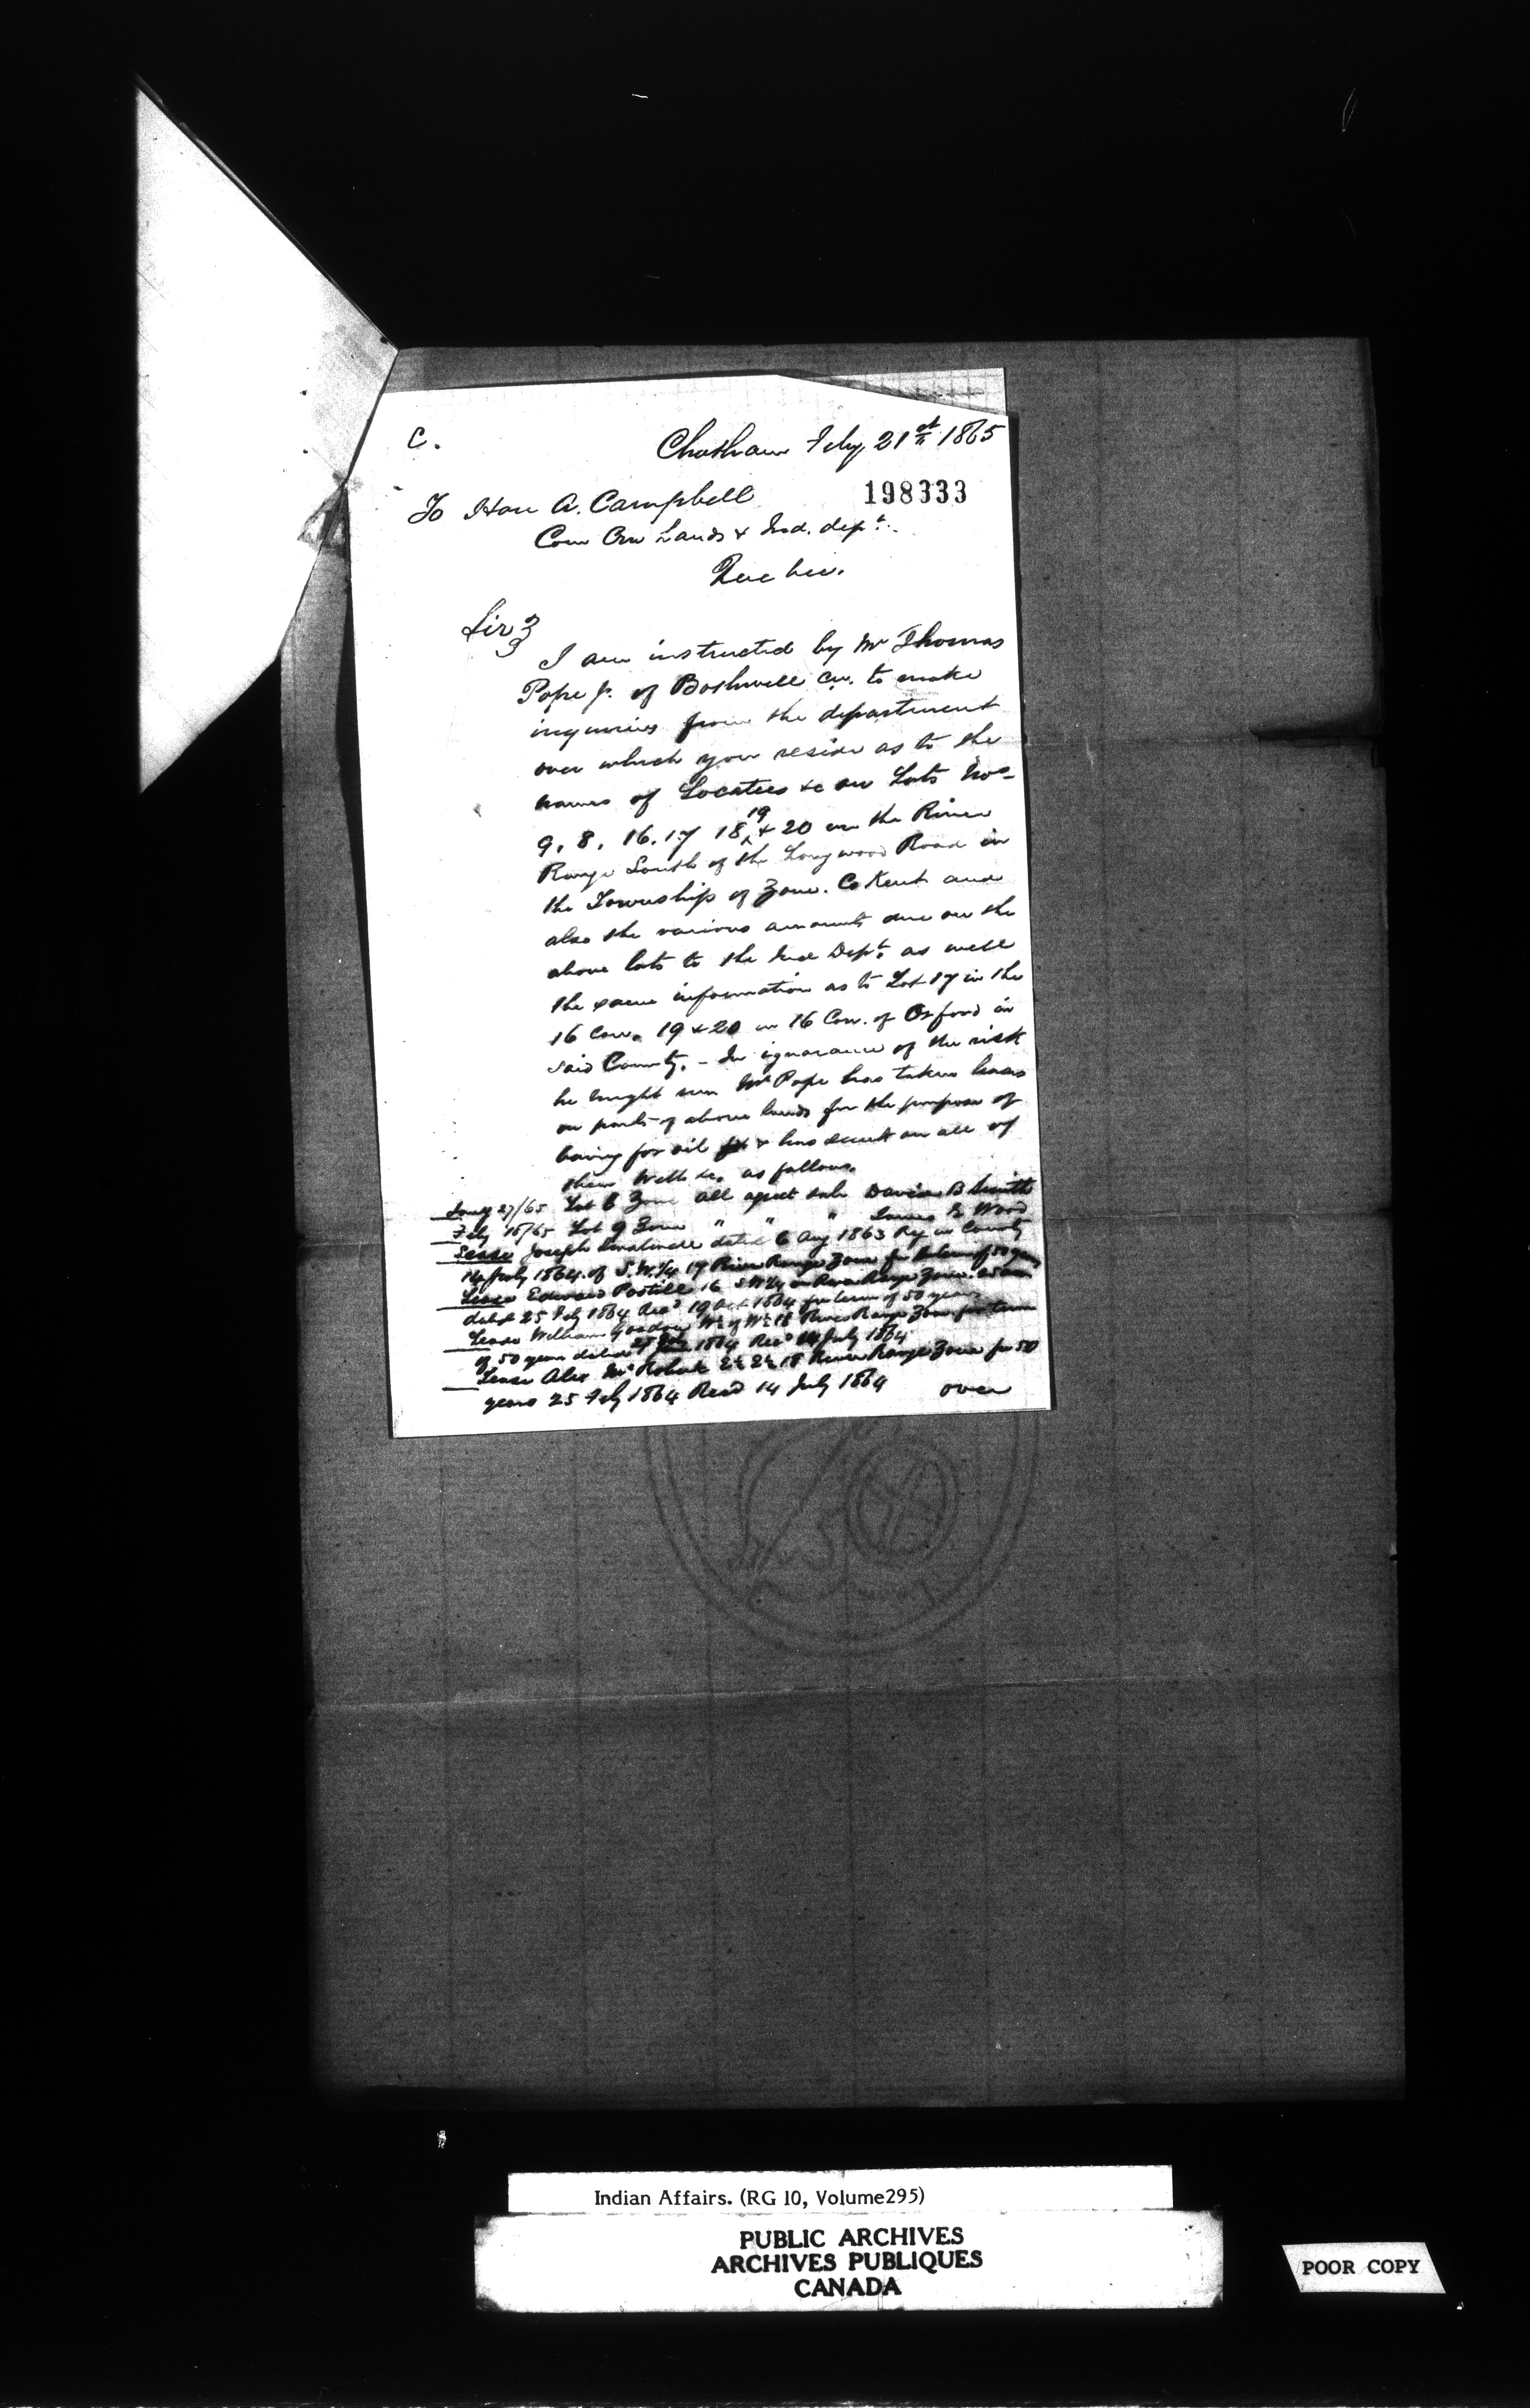 C.
Chatham Feby 21st 1865
198333
To Hon A. Campbell
Com Crn Lands & Ind. dept.
Quebec.
Sir
I am instructed by Mr Thomas
Pope jr. of Bothwell CW. to make
inquiries from the department
over which you reside as to the
names of Locatees &c on Lots Nos
9, 8, 16. 17 18, 19 & 20 on the River
Range South of the Longwood Road in
the Township of Zone. Co Kent and
also the various amounts due on the
above lots to the Ind Dept. as well
the same information as to Lot 17 in the
16 Con. 19 & 20 in 16 Con. of Orford in
said County. - In ignorance of the risk
he might run Mr Pope has taken leases
on parts of above lands for the purpose of
boring for oil & has sunk on all of
them Wells &c. as follows.
Jany 27/65 Lot 8 Zone all agreet sale David B Smith
Feby 18/65 Lot 9 Zone " " " James R Wood
Lease Joseph dated 6 Aug 1863 Reg in County
14 July 1864. of S.W.1/4 17 River Range Zone for term of 50 years
Lease Edward Postill 16 S W 1/4 on River Range Zone.
dated 25 Feby 1864 Recd 19 Oct 1864 for term of 50 years
Lease William Gordon W½ of W½ 18 River Range Zone for term
of 50 years dated 1864 Recd 14 July 1864
Lease Alex 18 River Range Zone for 50
years 25 Feby 1864 Recd 14 July 1864
over
Indian Affairs. (RG 10, Volume295)
PUBLIC ARCHIVES
ARCHIVES PUBLIQUES
CANADA
POOR COPY